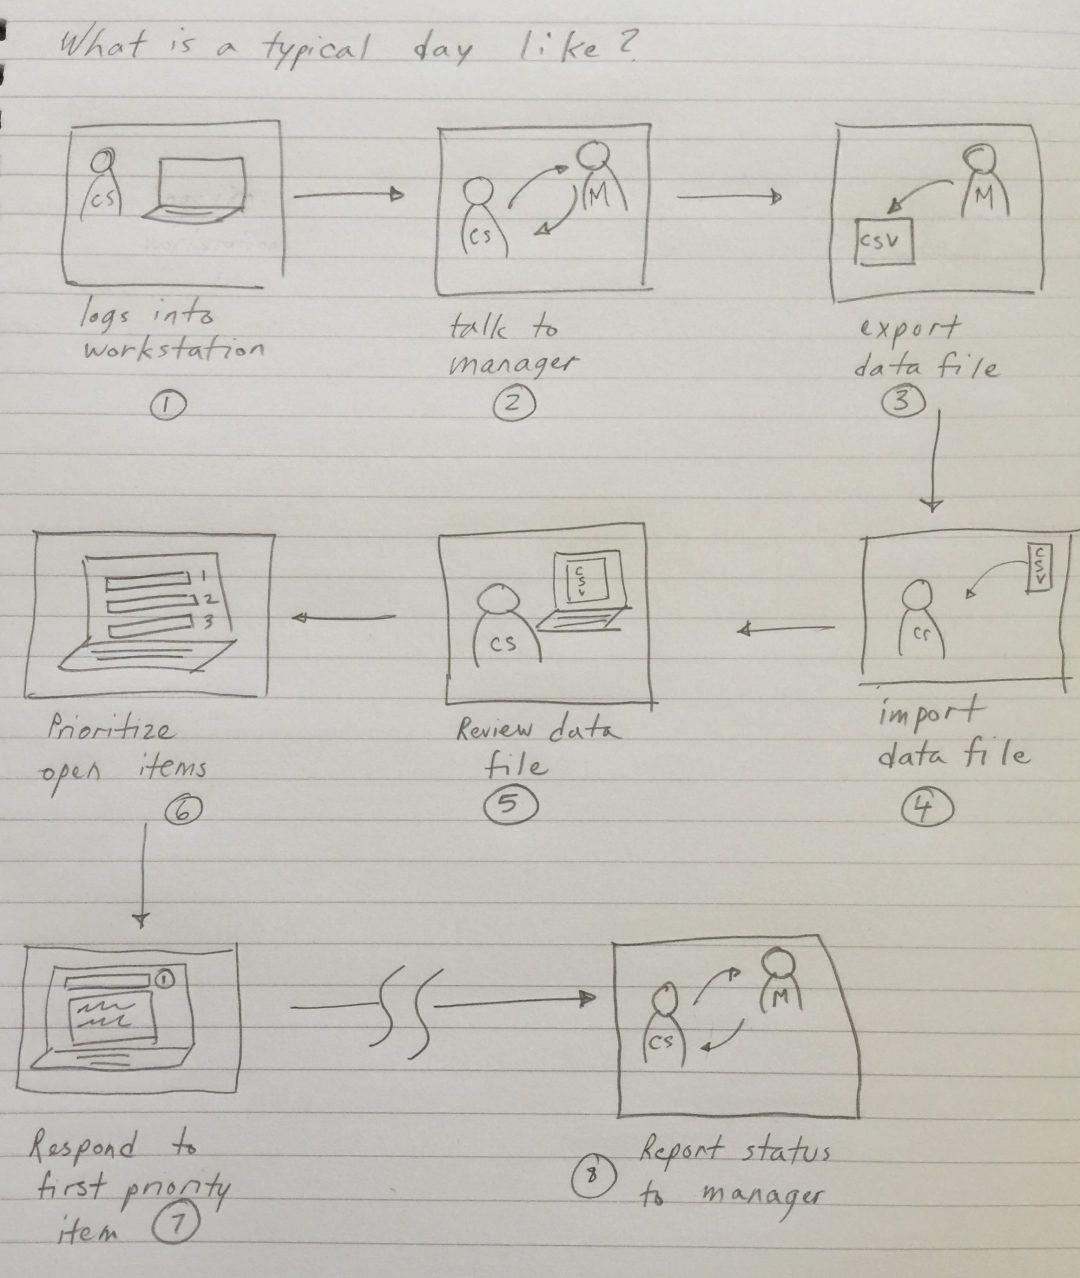 What is a typical day like?
CS
logs into
workstation
1
CS
M
talk to
manager
2
M
CSV
export
data file
3
CSV
import
data file
4
CS
CSV
Review data
file
5
1
2
3
Prioritize
open items
6
1
Respond to
first priority
item 7
CS
M
8 Report status
to manager